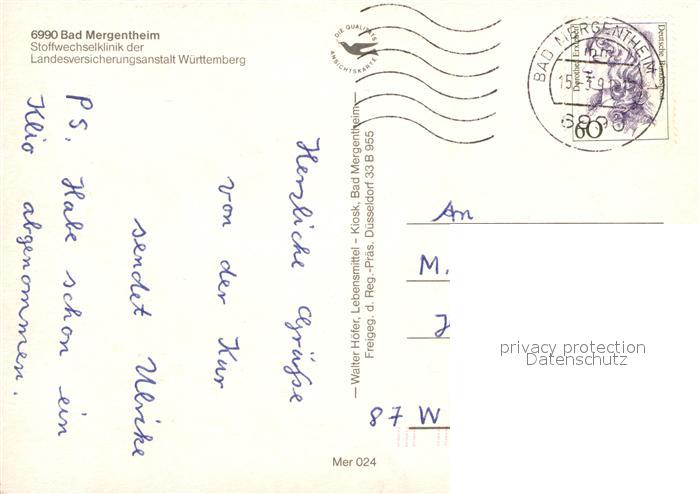 6990 Bad Mergentheim
Stoffwechselklinik der
Landesversicherungsanstalt Württemberg
DIE QUALITÄTS
ANSICHTSKARTE
Herzliche Grüße
von der Kur
sendet Ulrike
PS. Habe schon ein
Klio abgenommen.
Walter Höfer, Lebensmittel – Kiosk, Bad Mergentheim
Freigeg. d. Reg.-Präs. Düsseldorf 33 B 955
BAD MERGENTHEIM
6990
Deutsche Bundespost
60
An
M.
87 W
privacy protection
Datenschutz
Mer 024